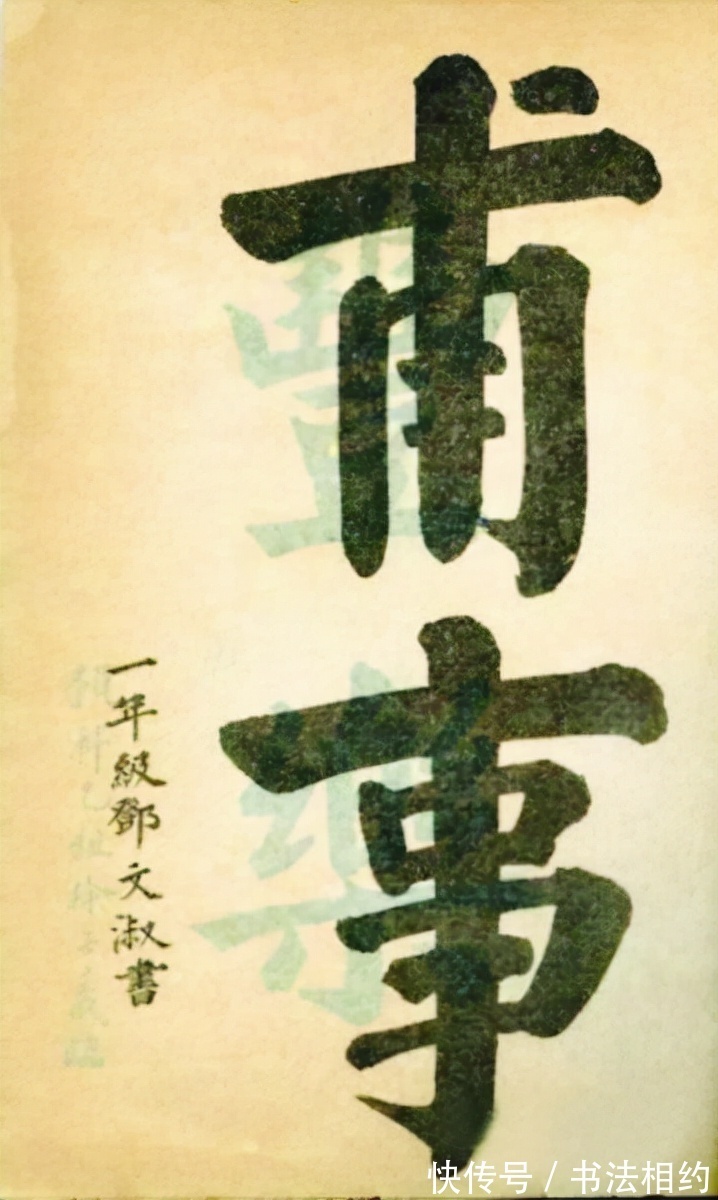 甫事
一年級鄧文淑書
快传号/书法相约